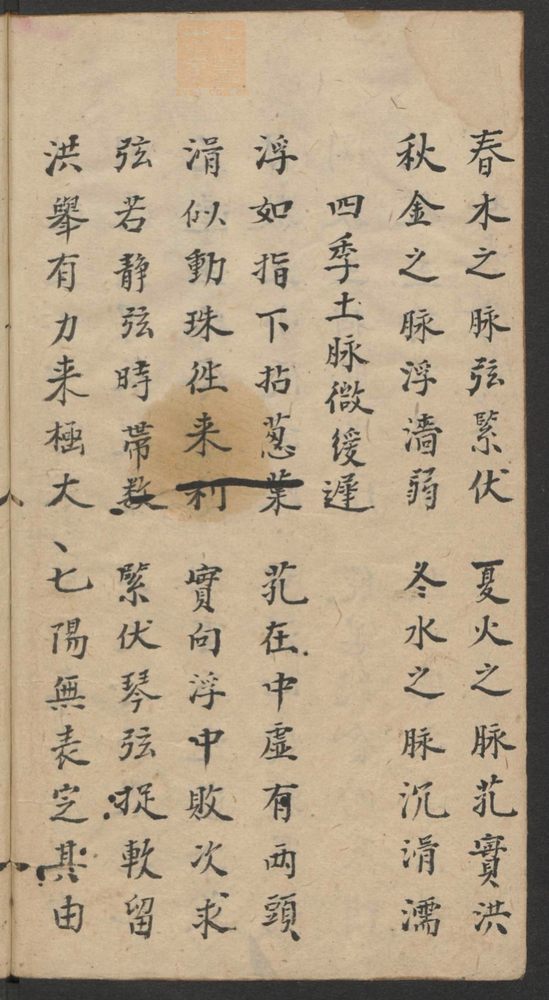 春木之脉弦緊伏 夏火之脉芤實洪
秋金之脉浮濇弱 冬水之脉沉滑濡
四季土脉微緩遲
浮如指下拈葱葉 芤在中虛有两頭
滑似動珠徃来利 實向浮中敗次求
弦若靜弦時帶数 緊伏琴弦捉軟留
洪舉有力来極大 七陽無表定其由